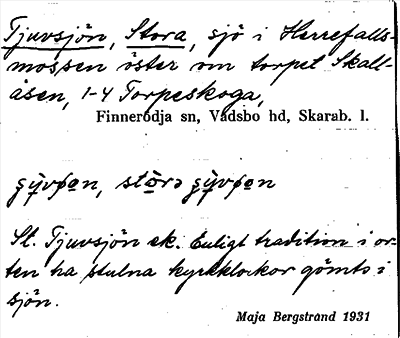 Tjuvsjön, Stora, sjö i Herrefalls-
mossen öster om torpet Skall-
åsen, 1-4 Torpeskoga,
Finnerödja sn, Vadsbo hd, Skarab. l.
störə
St. Tjuvsjön ek. Enligt tradition i or-
ten ha stulna kyrkklockor gömts i
sjön.
Maja Bergstrand 1931